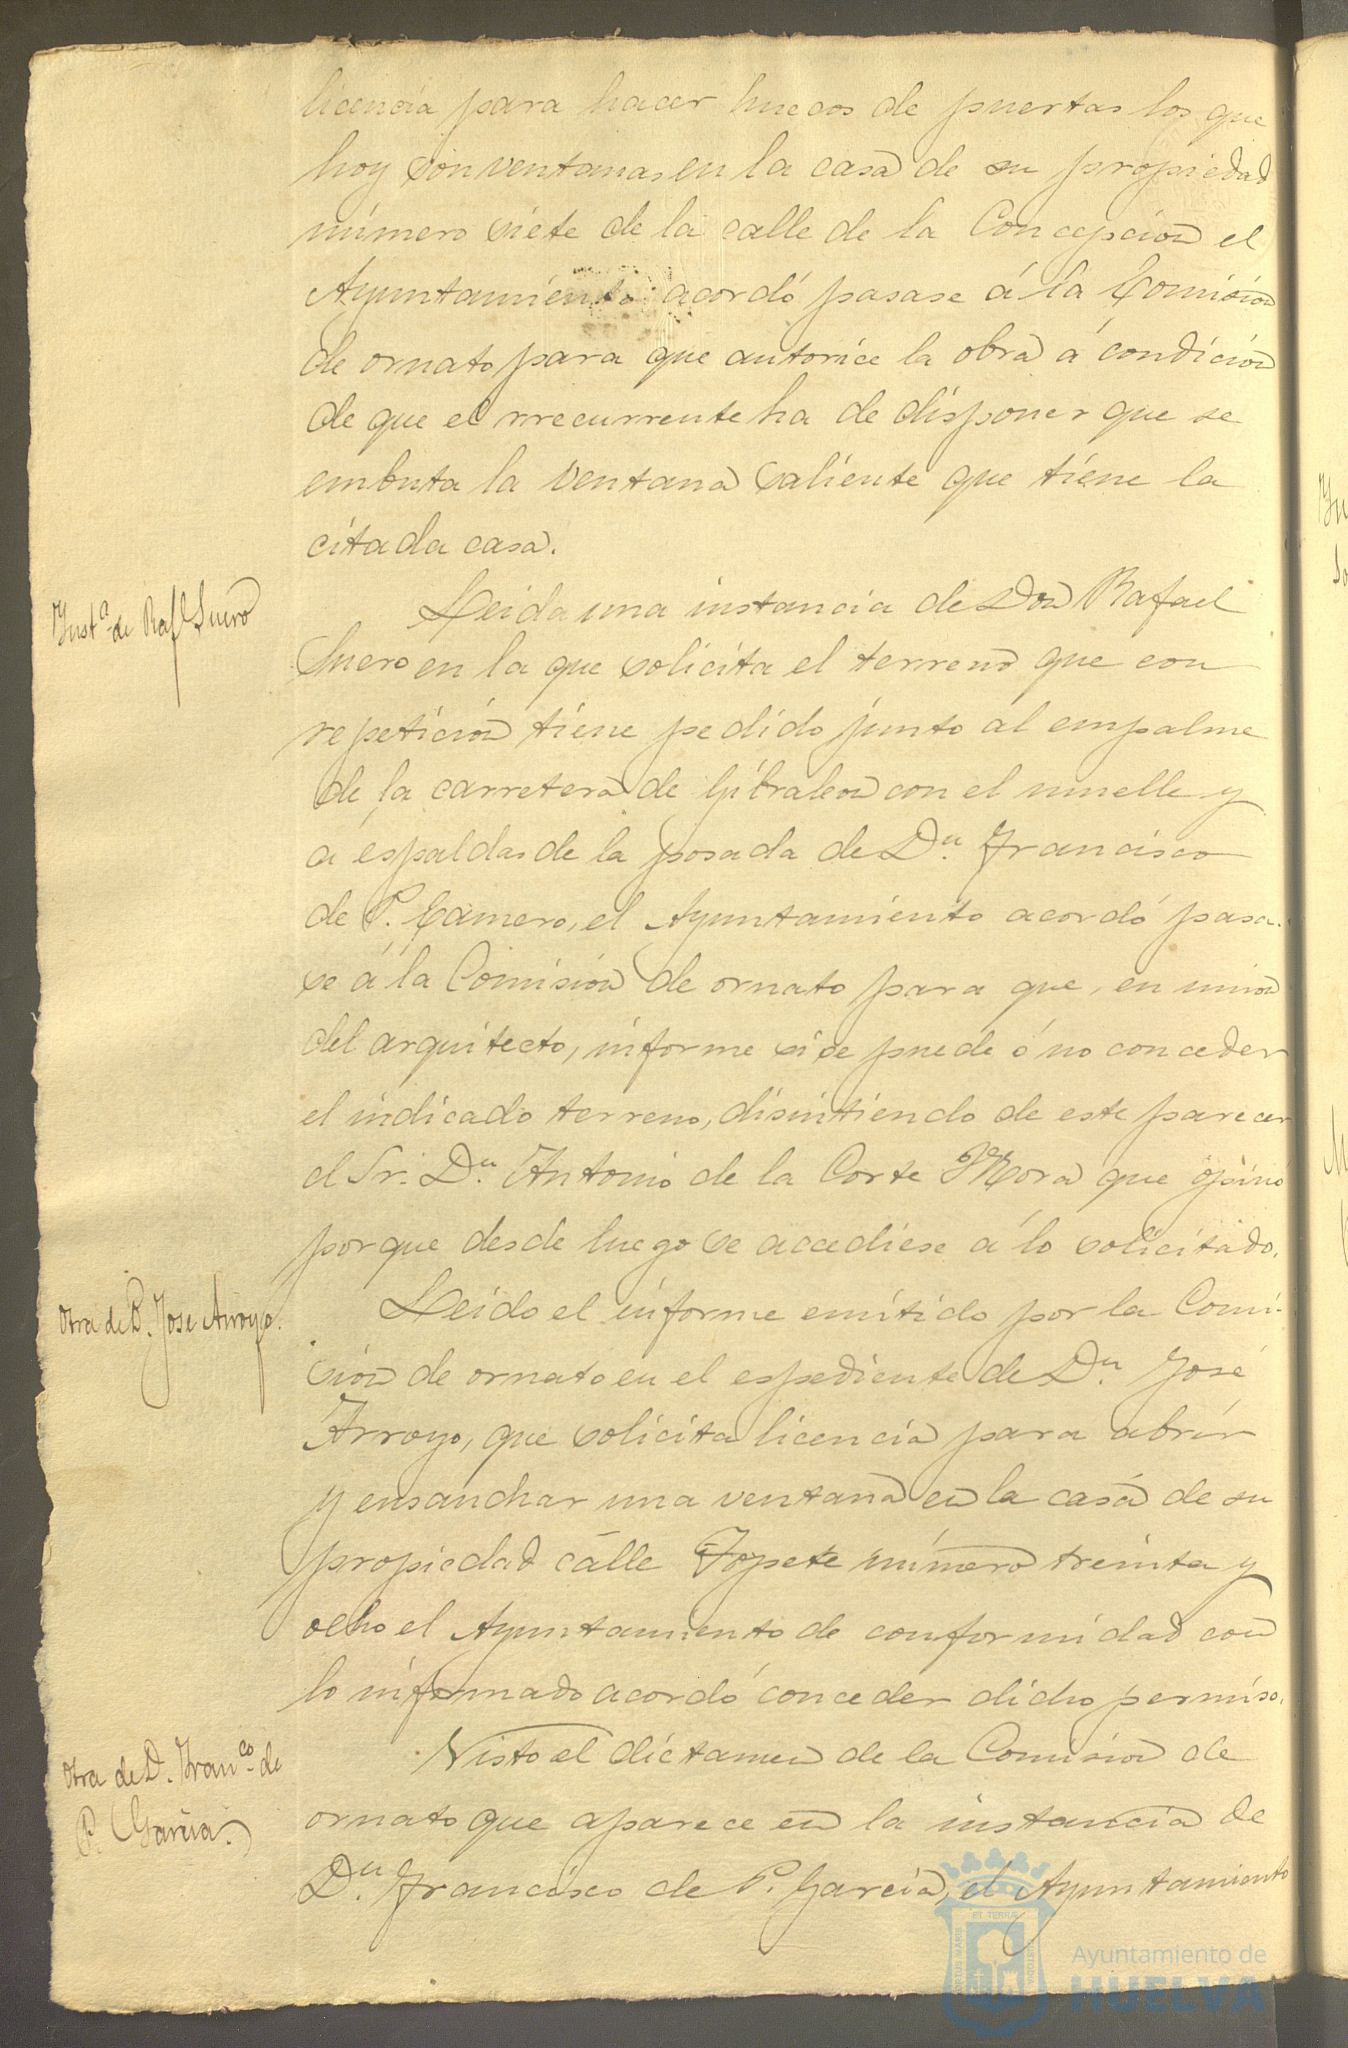 licencia para hacer huecos de puertas los que
hoy son ventanas en la casa de su propiedad
número siete de la calle de la Concepción el
Ayuntamiento acordó pasase á la Comisión
de ornato para que autorice la obra á condición
de que el recurrente ha de disponer que se
embuta la ventana saliente que tiene la
citada casa.
Inst.ª de Raf.l Suero
Leida una instancia de Don Rafael
Suero en la que solicita el terreno que con
repetición tiene pedido junto al empalme
de la carretera de Gibraleon con el muelle y
á espaldas de la posada de D.n Francisco
de P. Camero, el Ayuntamiento acordó pasa-
se á la Comisión de ornato para que, en union
del arquitecto, informe si se puede ó no conceder
el indicado terreno, disintiendo de este parecer
el Sr. D.n Antonio de la Corte Mora que opinó
porque desde luego se accediese á lo solicitado.
Otra de D. Jose Arroyo.
Leido el informe emitido por la Comi-
sión de ornato en el espediente de D.n José
Arroyo, que solicita licencia para abrir
y ensanchar una ventana en la casa de su
propiedad calle Topete número treinta y
ocho el Ayuntamiento de conformidad con
lo informado acordó conceder dicho permiso.
Otra de D. Fran.co de
P. Garcia.
Visto el dictamen de la Comision de
ornato que aparece en la instancia de
D.n Francisco de P. Garcia, el Ayuntamiento
Ayuntamiento de
HUELVA